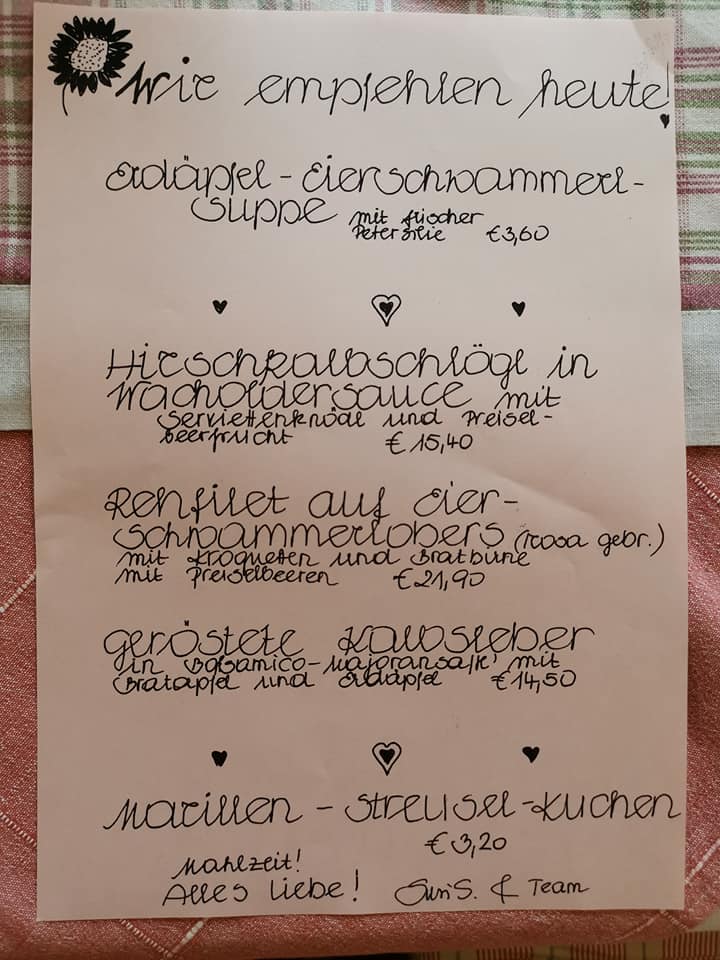 Wir empfehlen heute!
Erdäpfel-Eierschwammerl-
suppe mit frischer
Petersilie €3,60
Hirschkalbschlögl in
Wacholdersauce mit
Serviettenknödl und Preisel-
beerfrucht €15,40
Rehfilet auf Eier-
schwammerlobers (rosa gebr.)
mit Kroquetten und Bratbirne
mit Preiselbeeren €21,90
geröstete Kalbsleber
in Balsamico-Majoransaftl mit
Bratapfel und Erdäpfel €14,50
Marillen-Streusel-Kuchen
€3,20
Mahlzeit!
Alles Liebe! & Team